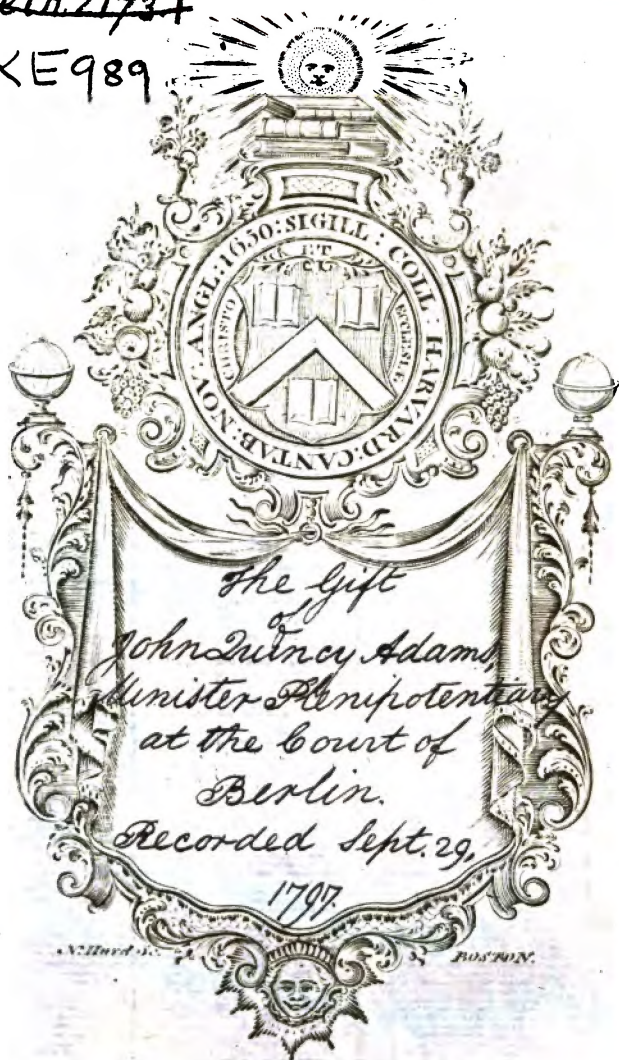 KE989
SIGILL: COLL: HARVARD: CANTAB: NOV: ANGL: 1650:
ET
CHRISTO
ECCLESIÆ
The Gift
of
John Quincy Adams,
Minister Plenipotentiary
at the Court of
Berlin.
Recorded Sept. 29,
1797.
N. Hurd Sc.
BOSTON.